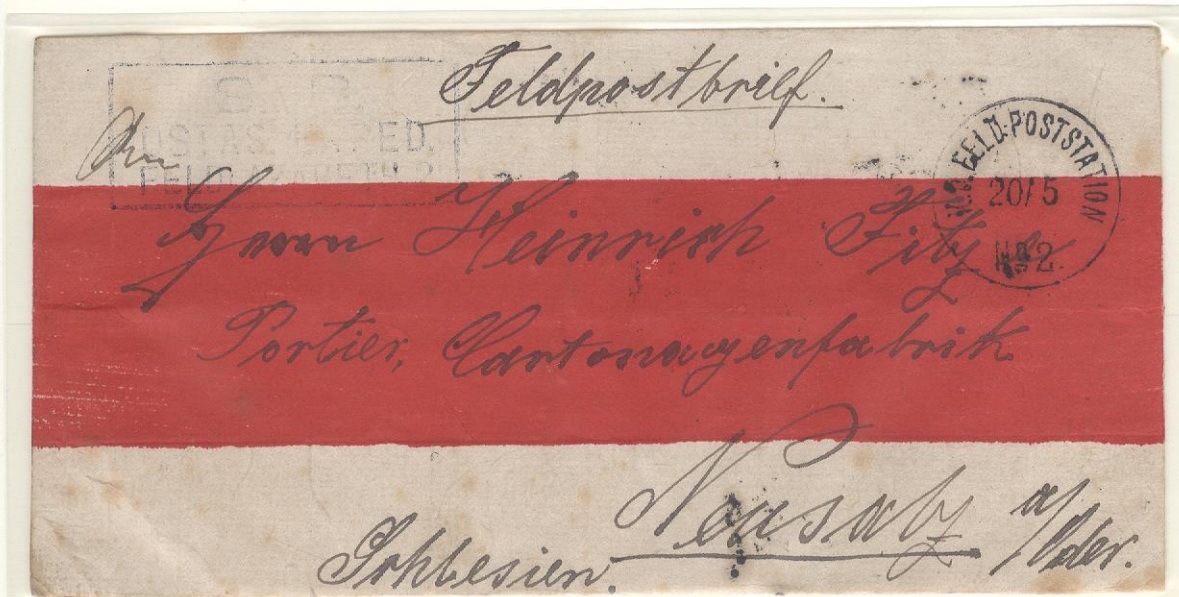 Feldpostbrief.
K.D. FELD-POSTSTATION
20/5
No 2
An
Herrn Heinrich Fitze
Portier, Cartonagenfabrik
Neusalz a/Oder.
Schlesien.